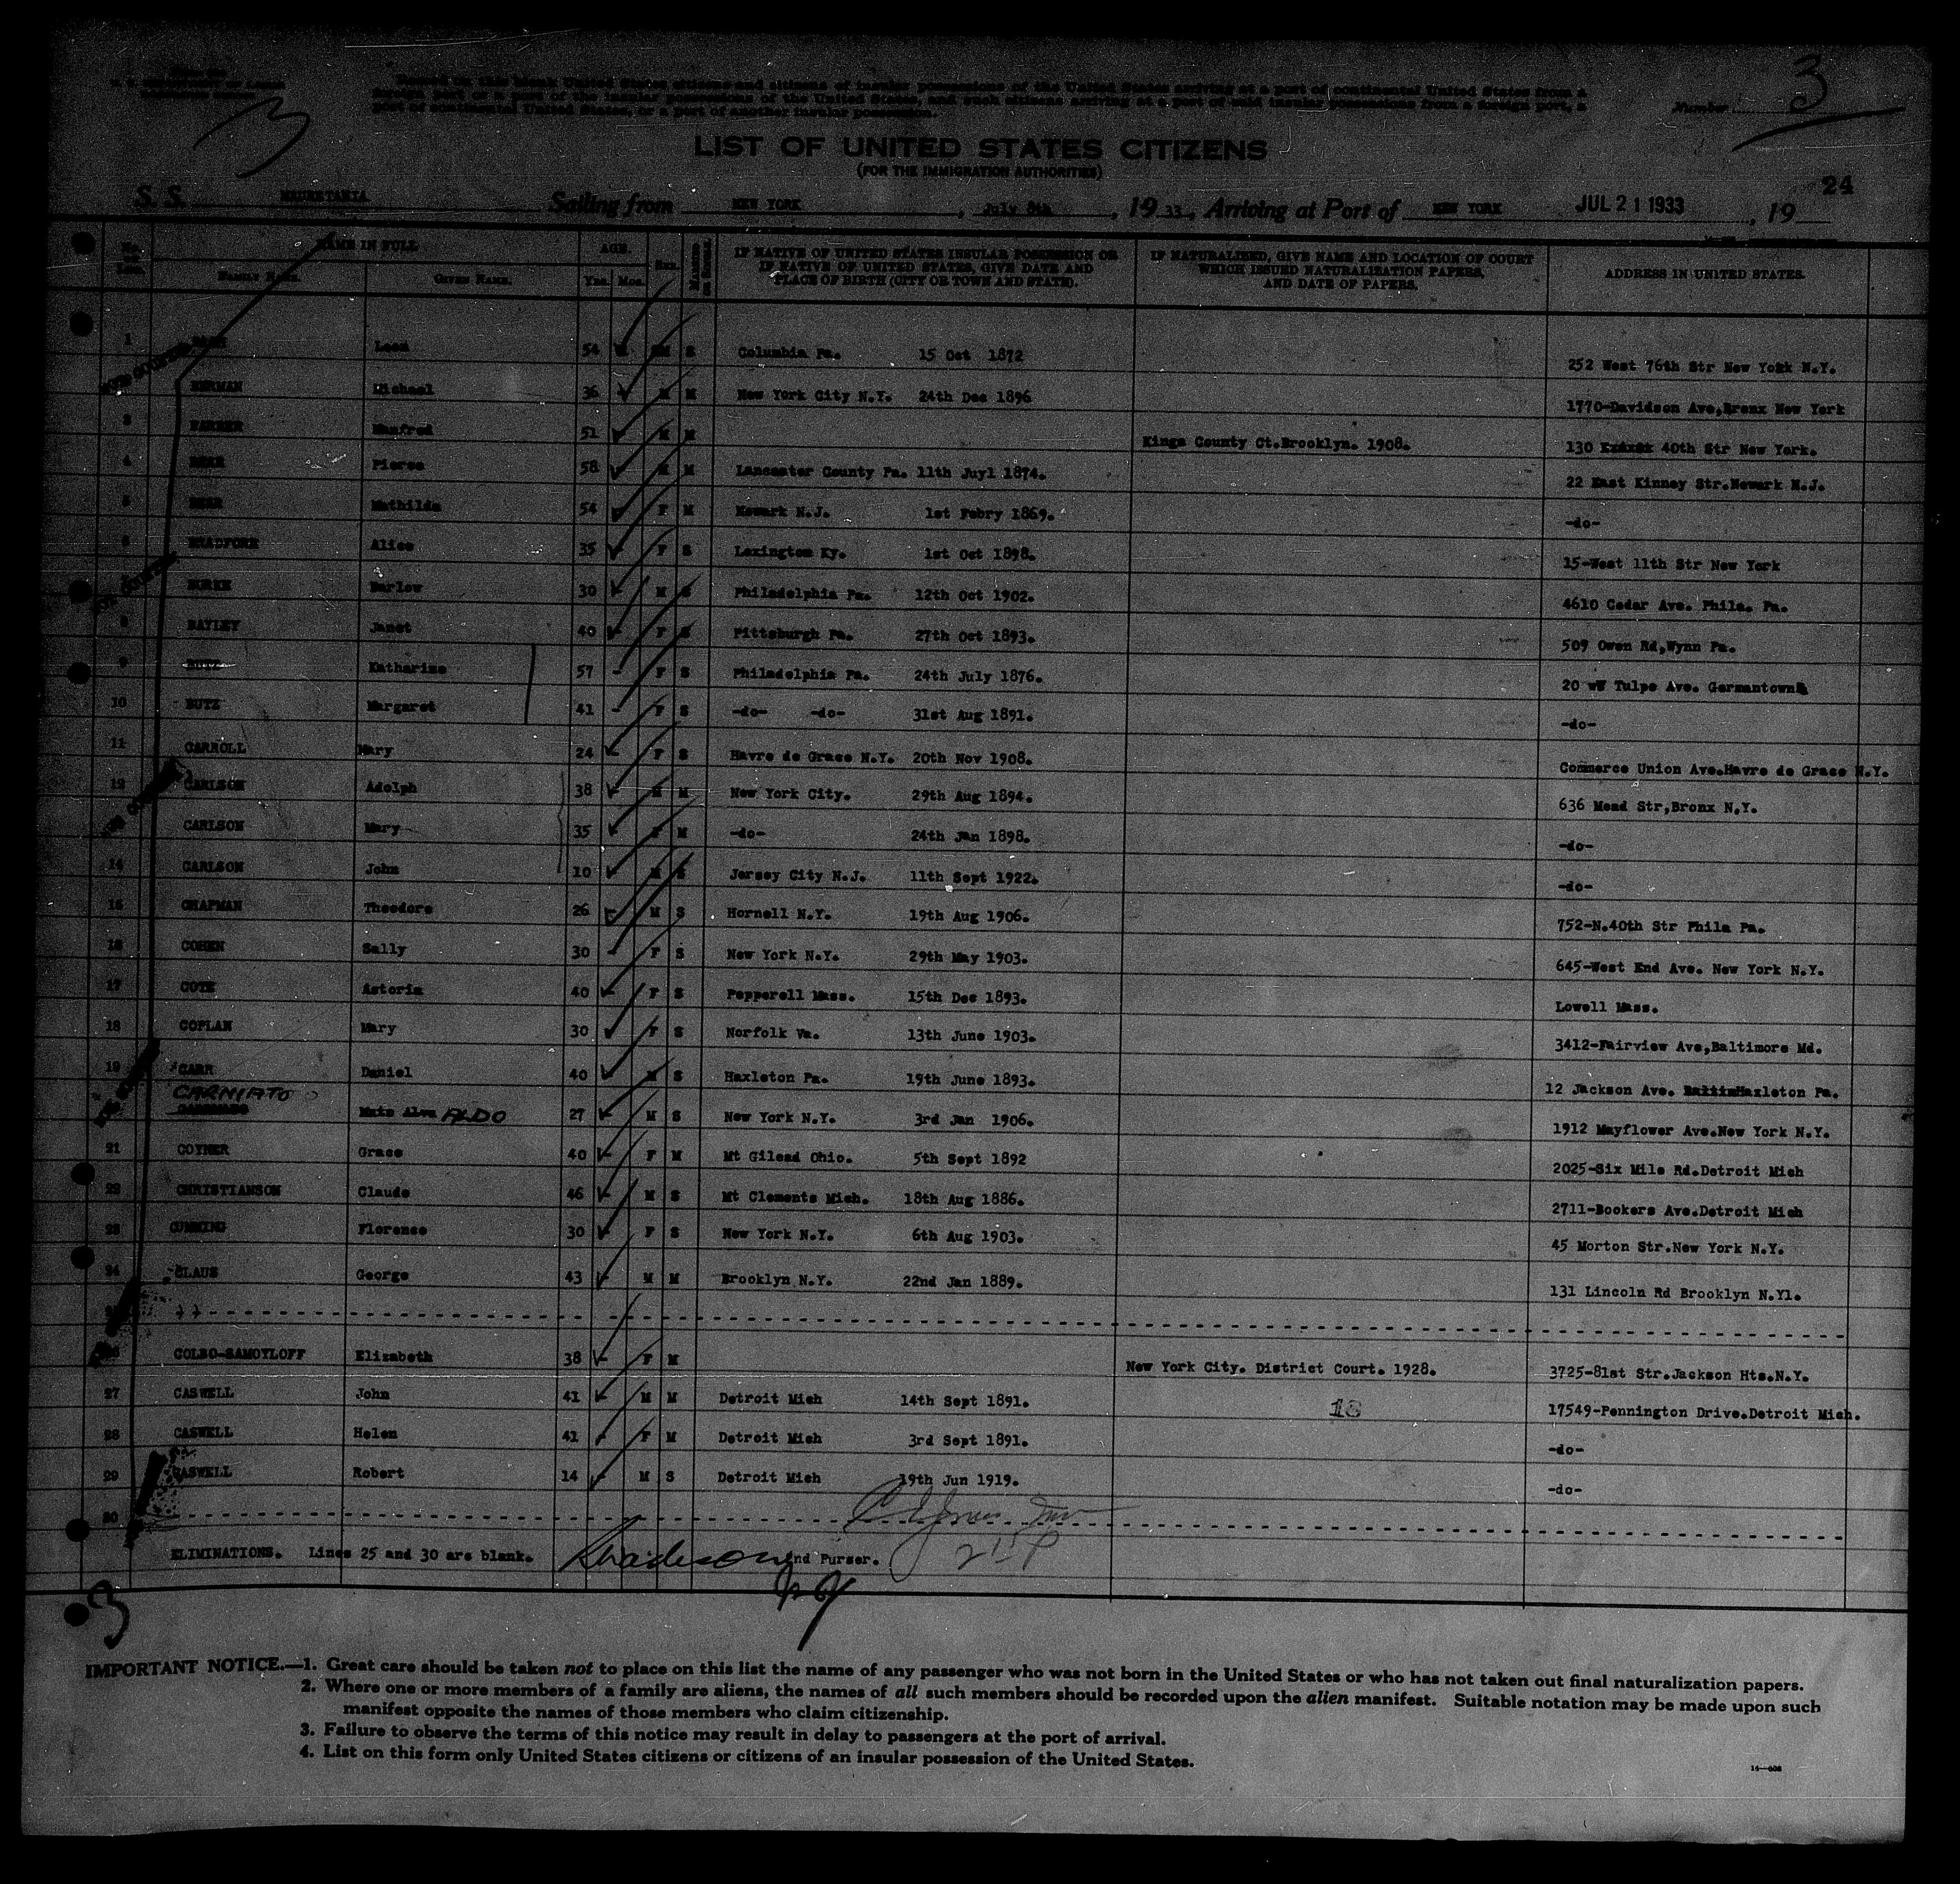 3
Number 3
LIST OF UNITED STATES CITIZENS
(FOR THE IMMIGRATION AUTHORITIES)
24
S. S. MAURETANIA Sailing from NEW YORK, July 8th, 1933, Arriving at Port of NEW YORK JUL 21 1933, 19
No. on List. NAME IN FULL AGE. Sex. Married or Single. IF NATIVE OF UNITED STATES INSULAR POSSESSION OR IF NATIVE OF UNITED STATES, GIVE DATE AND PLACE OF BIRTH (CITY OR TOWN AND STATE). IF NATURALIZED, GIVE NAME AND LOCATION OF COURT WHICH ISSUED NATURALIZATION PAPERS, AND DATE OF PAPERS. ADDRESS IN UNITED STATES.
Family Name. Given Name. Yrs. Mos.
1 Leon 54 M S Columbia Pa. 15 Oct 1872 252 West 76th Str New York N.Y.
BERMAN Michael 36 M M New York City N.Y. 24th Dec 1896 1770-Davidson Ave,Bronx New York
3 Manfred 51 M M Kings County Ct.Brooklyn. 1908. 130 40th Str New York.
4 BEAR Pierce 58 M M Lancaster County Pa. 11th Juyl 1874. 22 East Kinney Str.Newark N.J.
5 BEAR Mathilda 54 F M Newark N.J. 1st Febry 1869. -do-
6 Alice 35 F S Lexington Ky. 1st Oct 1898. 15-West 11th Str New York
BURKE Barlow 30 M S Philadelphia Pa. 12th Oct 1902. 4610 Cedar Ave. Phila. Pa.
8 BAYLEY Janet 40 F S Pittsburgh Pa. 27th Oct 1893. 509 Owen Rd,Wynn Pa.
9 BUTZ Katharine 57 - F S Philadelphia Pa. 24th July 1876. 20 W Tulpe Ave. Germantown
10 BUTZ Margaret 41 - F S -do- -do- 31st Aug 1891. -do-
11 CARROLL Mary 24 F S Havre de Grace N.Y. 20th Nov 1908. Commerce Union Ave.Havre de Grace N.Y.
12 CARLSON Adolph 38 M M New York City. 29th Aug 1894. 636 Mead Str,Bronx N.Y.
CARLSON Mary 35 F M -do- 24th Jan 1898. -do-
14 CARLSON John 10 M S Jersey City N.J. 11th Sept 1922. -do-
15 CHAPMAN Theodore 26 M S Hornell N.Y. 19th Aug 1906. 752-N.40th Str Phila Pa.
16 COHEN Sally 30 F S New York N.Y. 29th May 1903. 645-West End Ave. New York N.Y.
17 COTE Astoria 40 F S Pepperell Mass. 15th Dec 1893. Lowell Mass.
18 COPLAN Mary 30 F S Norfolk Va. 13th June 1903. 3412-Fairview Ave,Baltimore Md.
19 CARR Daniel 40 M S Haxleton Pa. 19th June 1893. 12 Jackson Ave. Hazleton Pa.
CARNIATO ALDO 27 M S New York N.Y. 3rd Jan 1906. 1912 Mayflower Ave.New York N.Y.
21 COYNER Grace 40 F M Mt Gilead Ohio. 5th Sept 1892 2025-Six Mile Rd.Detroit Mich
22 CHRISTIANSON Claude 46 M S Mt Clements Mich. 18th Aug 1886. 2711-Bookers Ave.Detroit Mich
23 CUMMING Florence 30 F S New York N.Y. 6th Aug 1903. 45 Morton Str.New York N.Y.
24 CLAUS George 43 M M Brooklyn N.Y. 22nd Jan 1889. 131 Lincoln Rd Brooklyn N.Yl.
COLBO-SAMOYLOFF Elizabeth 38 F M New York City. District Court. 1928. 3725-81st Str.Jackson Hts.N.Y.
27 CASWELL John 41 M M Detroit Mich 14th Sept 1891. 18 17549-Pennington Drive.Detroit Mich.
28 CASWELL Helen 41 F M Detroit Mich 3rd Sept 1891. -do-
29 CASWELL Robert 14 M S Detroit Mich 19th Jun 1919. -do-
30
ELIMINATIONS. Lines 25 and 30 are blank. nd Purser.
3
IMPORTANT NOTICE.—1. Great care should be taken not to place on this list the name of any passenger who was not born in the United States or who has not taken out final naturalization papers.
2. Where one or more members of a family are aliens, the names of all such members should be recorded upon the alien manifest. Suitable notation may be made upon such
manifest opposite the names of those members who claim citizenship.
3. Failure to observe the terms of this notice may result in delay to passengers at the port of arrival.
4. List on this form only United States citizens or citizens of an insular possession of the United States.
14—608